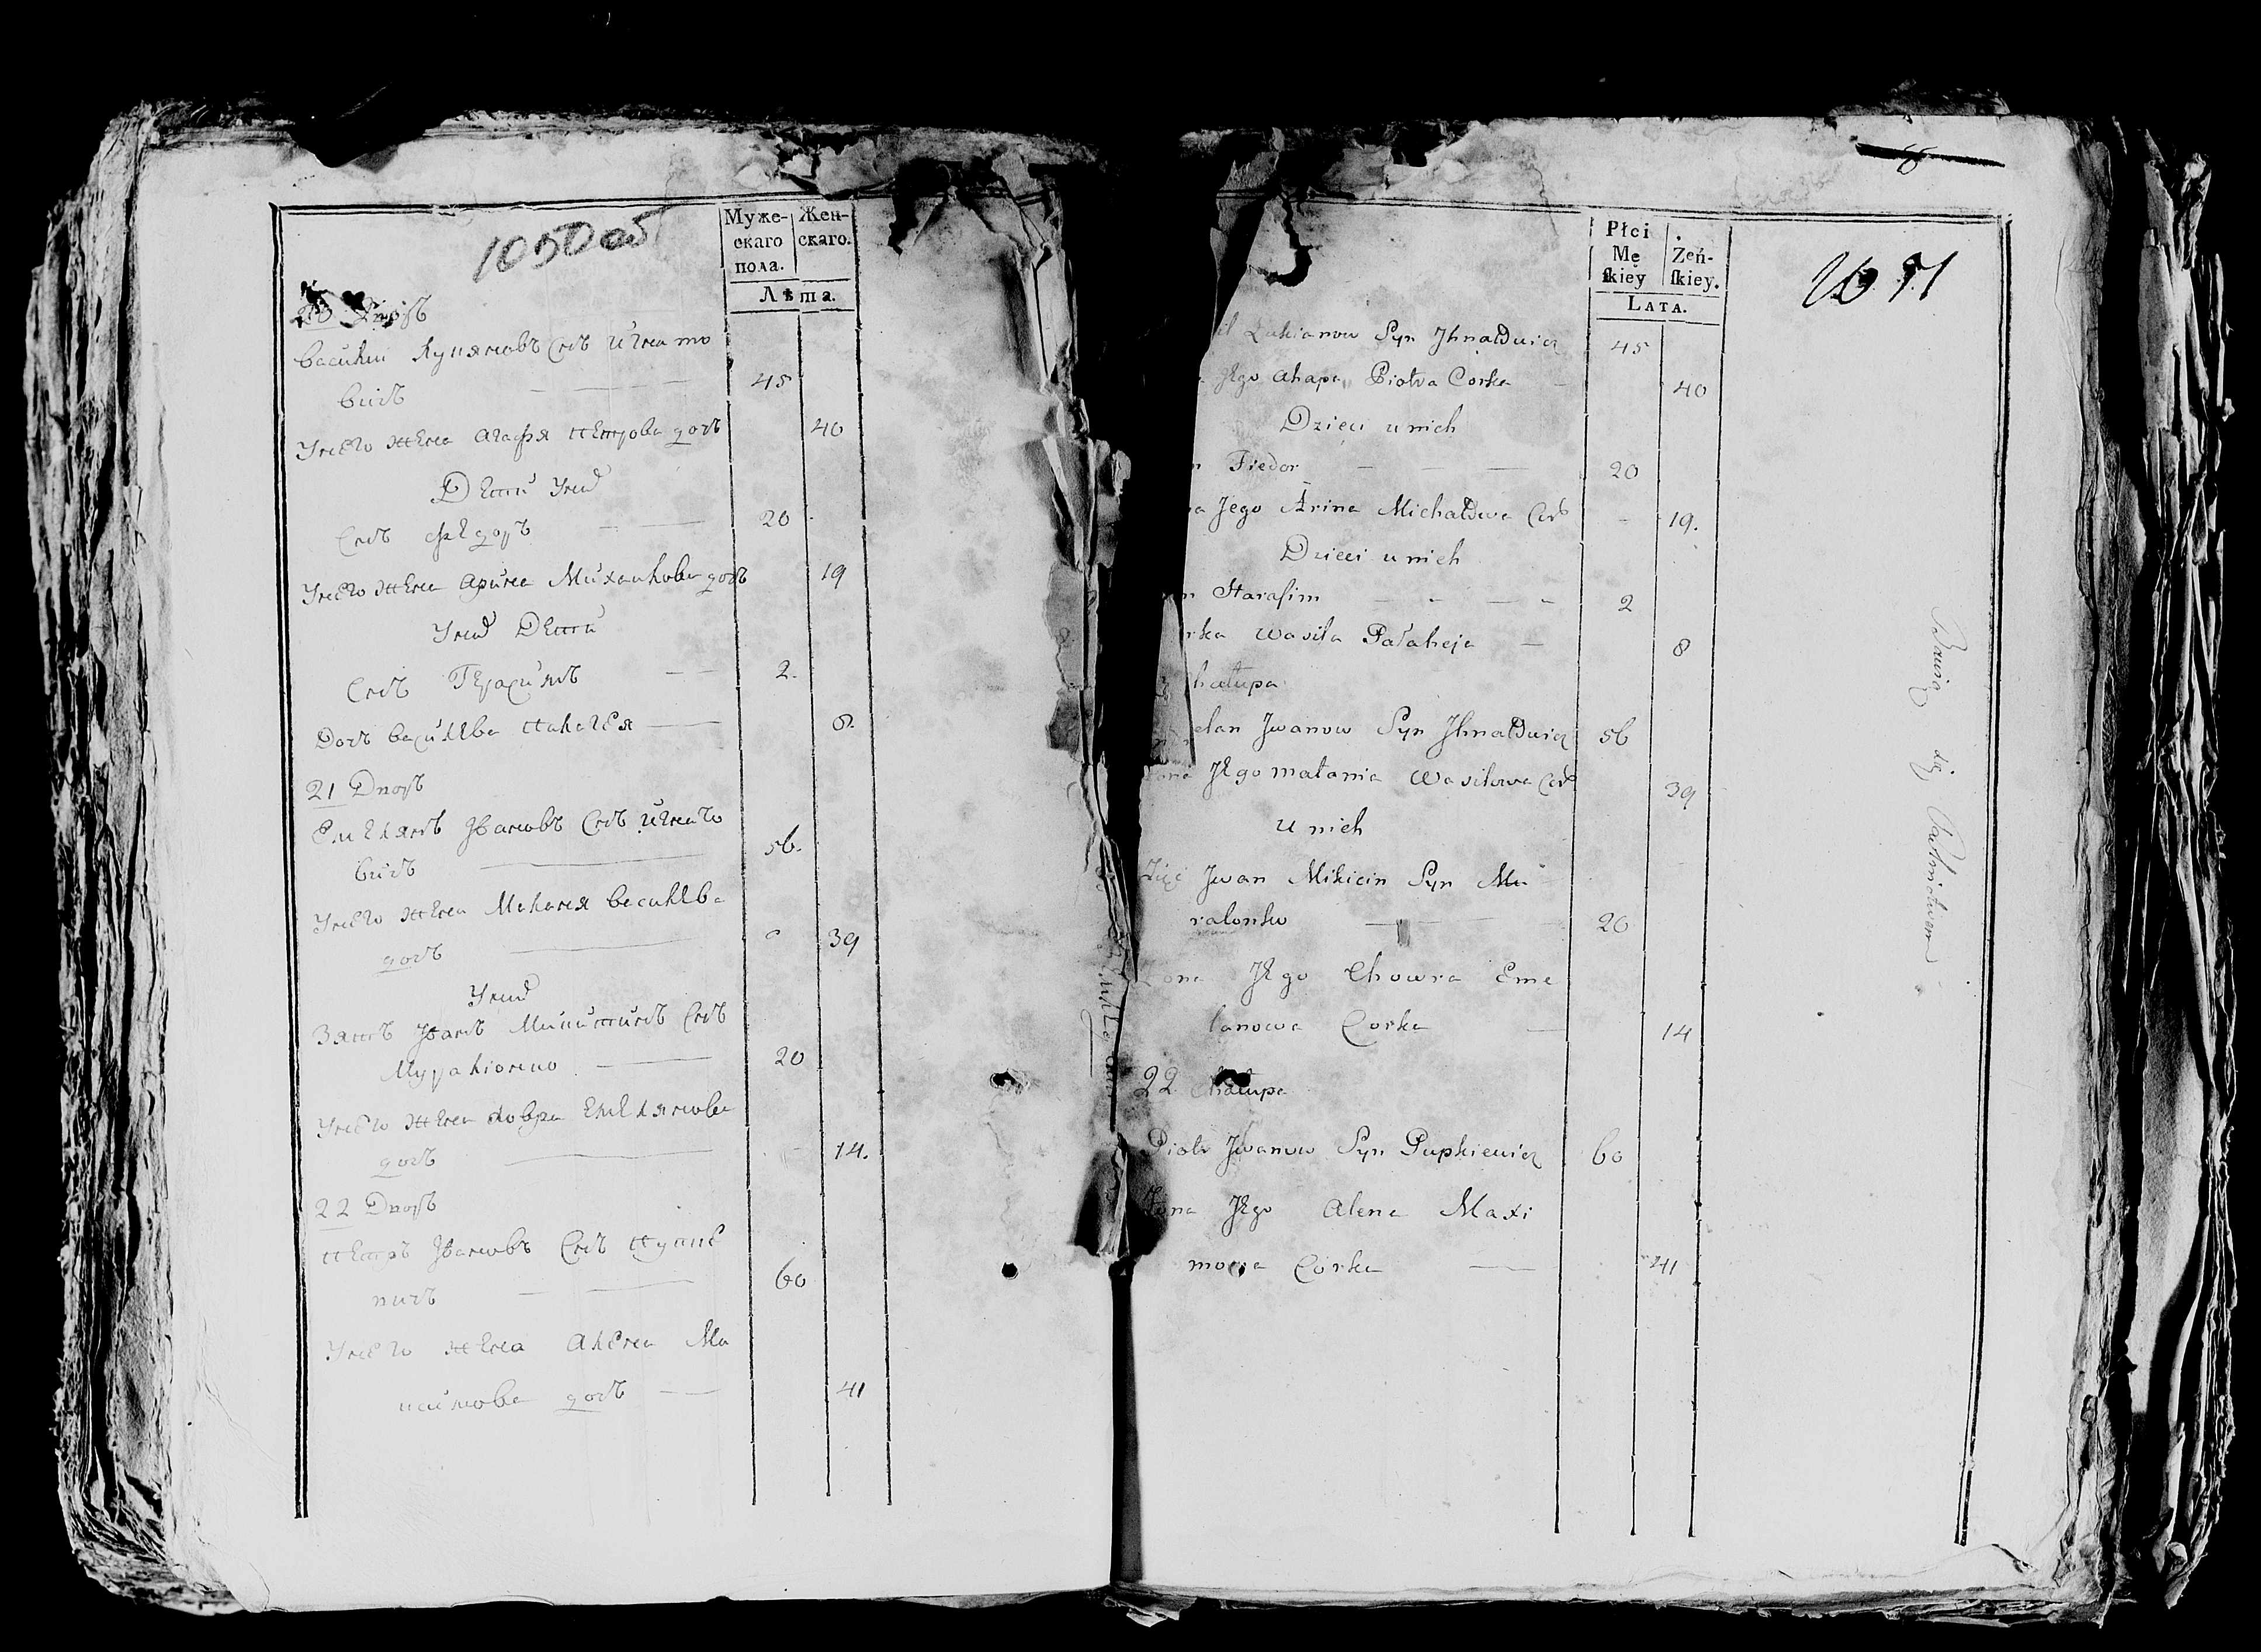 1050об
Муже-
скаго
пола.
Жен-
скаго.
Лѣта.
20 Дворъ
Василий Лукяновъ Снъ Игнато
вичъ 45
У него жена Агафя Петрова дочъ 40
Дети у них
Снъ Федоръ 20
У него жена Арина Михайлова дочъ 19
У них Дети
Снъ Герасимъ 2.
Дочъ Василева Палагея 8.
21 Дворъ
Емелянъ Ивановъ Снъ Игнато
вичъ 56.
У него жена Маланя Василева
дочъ 39
У них
Зять Иванъ Микитинъ Снъ
Муралонко 20
У него жена Ховра Емелянова
дочъ 14.
22 Дворъ
Петръ Ивановъ Снъ Пупке
вичъ 60
У него жена Алена Ма
ксимова дочъ 41
Płci
Mę
skiey
Żeń-
skiey.
LATA.
1051
il Łukianow Syn Jhnatowicz 45
Jego Ahapa Piotra Corka 40
Dzieci u nich
n Fiedor 20
na Jego Arina Michałowa Cor 19.
Dzieci u nich
n Harasim 2
rka Wasila Pałaheja 8
hałupa
elan Jwanow Syn Jhnatowicz 56
ona Jego Małania Wasilowa Cor 39
U nich
Zięć Jwan Mikicin Syn Mu
ralonko 20
ona Jego Chowra Eme
lanowa Corka 14
22 Chałupa
Piotr Jwanow Syn Pupkiewicz 60
Żona Jego Alena Maxi
mowa Corka 41